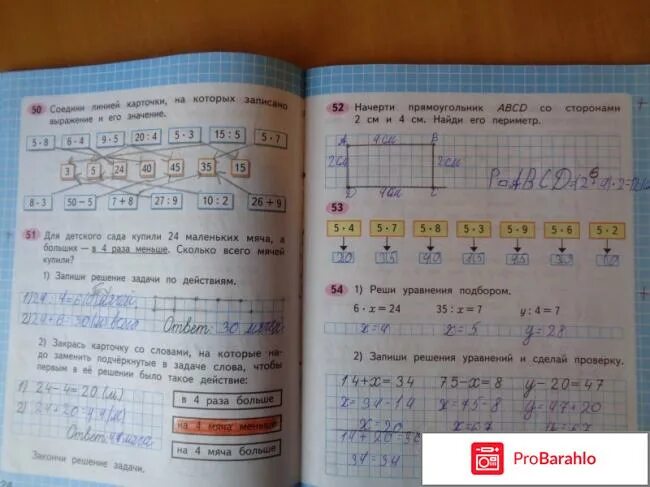 50 Соедини линией карточки, на которых записано
выражение и его значение.
5·8 6·4 9·5 20:4 5·3 15:5 5·7
3 5 24 40 45 35 15
8·3 50−5 7+8 27:9 10:2 26+9
51 Для детского сада купили 24 маленьких мяча, а
больших — в 4 раза меньше. Сколько всего мячей
купили?
1) Запиши решение задачи по действиям.
1) 24:4=6
2) 24+6=30 Ответ: 30
2) Закрась карточку со словами, на которые на-
до заменить подчёркнутые в задаче слова, чтобы
первым в её решении было такое действие:
1) 24−4=20 (м)
2) 24+20=44 (м)
Ответ: 44 мяча
в 4 раза больше
на 4 мяча меньше
на 4 мяча больше
Закончи решение задачи.
52 Начерти прямоугольник ABCD со сторонами
2 см и 4 см. Найди его периметр.
A 4см B
2см 2см
D 4см C
P ABCD=(2+4)·2=
53
5·4 5·7 5·8 5·3 5·9 5·6 5·2
20 35 40 15 45
54 1) Реши уравнения подбором.
6·x=24 35:x=7 y:4=7
x=4 x=5 y=28
2) Запиши решения уравнений и сделай проверку.
14+x=34 75−x=8 y−20=47
x=34−14 x=75−8 y=47+20
x=20 x=67
14+20=34
34=34
ProBarahlo